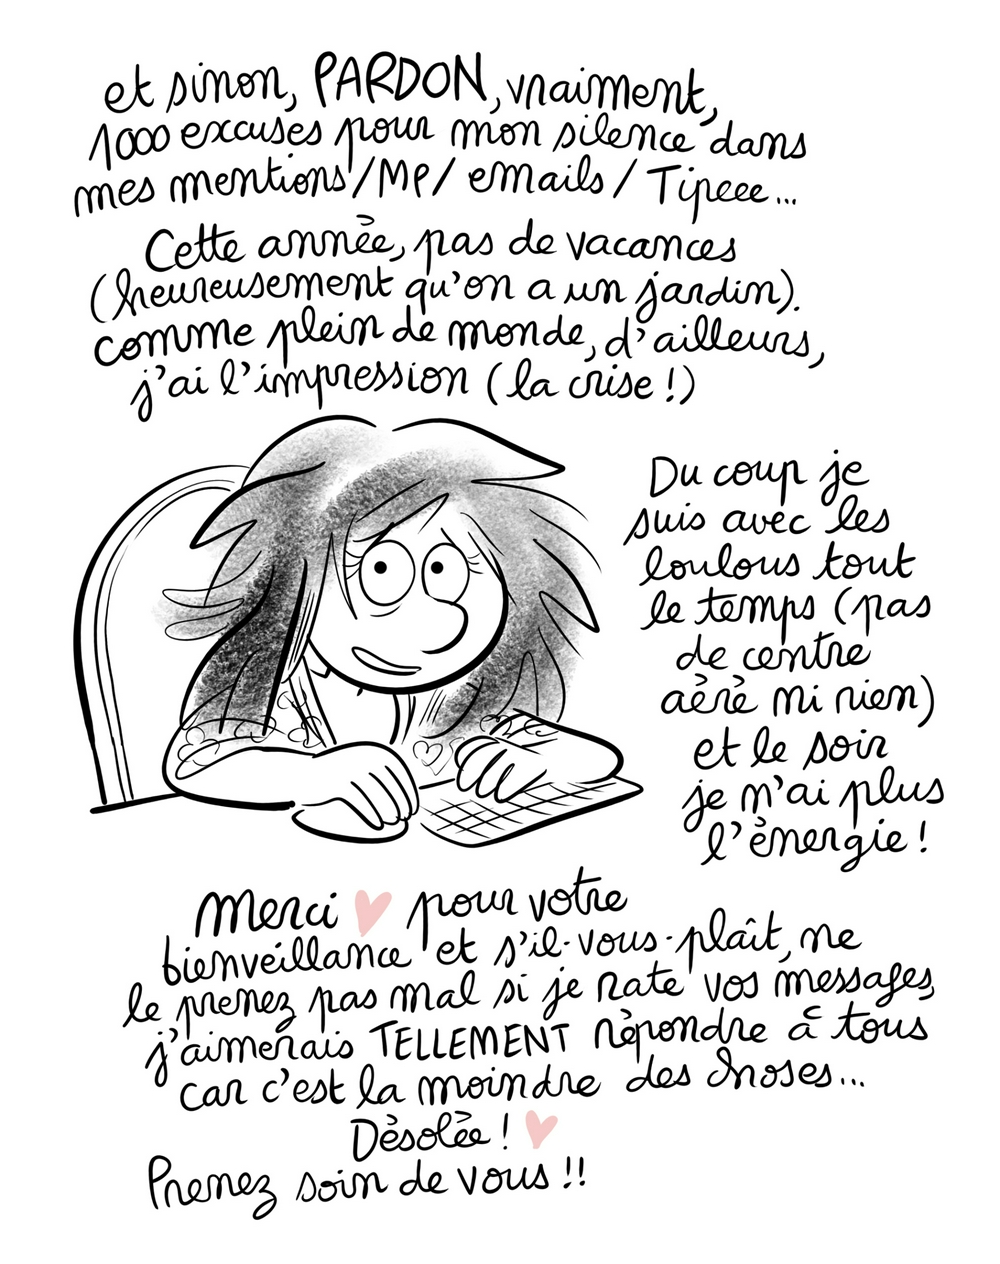 et sinon, PARDON, vraiment,
1000 excuses pour mon silence dans
mes mentions/MP/emails/Tipeee...
Cette année, pas de vacances
(heureusement qu'on a un jardin).
comme plein de monde, d'ailleurs,
j'ai l'impression (la crise !)
Du coup je
suis avec les
loulous tout
le temps (pas
de centre
aéré ni rien)
et le soir
je n'ai plus
l'énergie !
Merci ♥ pour votre
bienveillance et s'il-vous-plaît, ne
le prenez pas mal si je rate vos messages,
j'aimerais TELLEMENT répondre à tous
car c'est la moindre des choses...
Désolée ! ♥
Prenez soin de vous !!